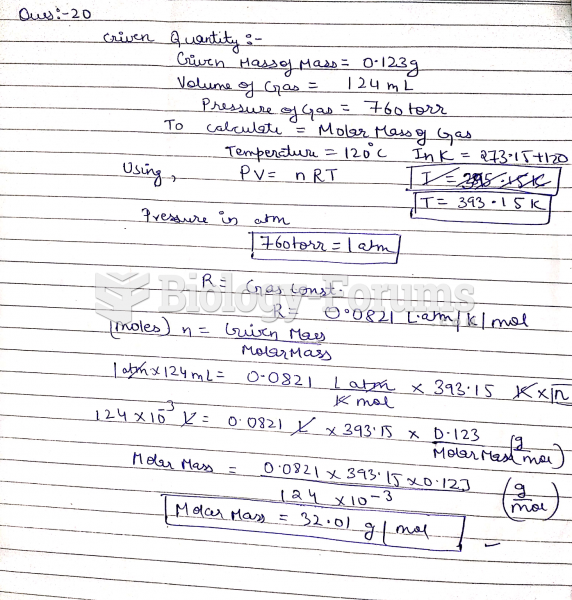 Ques:-20
Given Quantity:-
Given Mass of Mass = 0.123g
Volume of Gas = 124 mL
Pressure of Gas = 760 torr
To calculate = Molar Mass of Gas
Temperature = 120°C In K = 273.15+120
Using, PV = nRT
T = 393.15K
Pressure in atm
760 torr = 1 atm
R = Gas Const.
R = 0.0821 L.atm/K/mol
(moles) n = Given Mass / Molar Mass
1 atm x 124 mL = 0.0821 L atm / K mol x 393.15 K x n
124 x 10^-3 L = 0.0821 L x 393.15 x 0.123 / Molar Mass (g/mol)
Molar Mass = 0.0821 x 393.15 x 0.123 / 124 x 10^-3 (g/mol)
Molar Mass = 32.01 g/mol
Biology-Forums